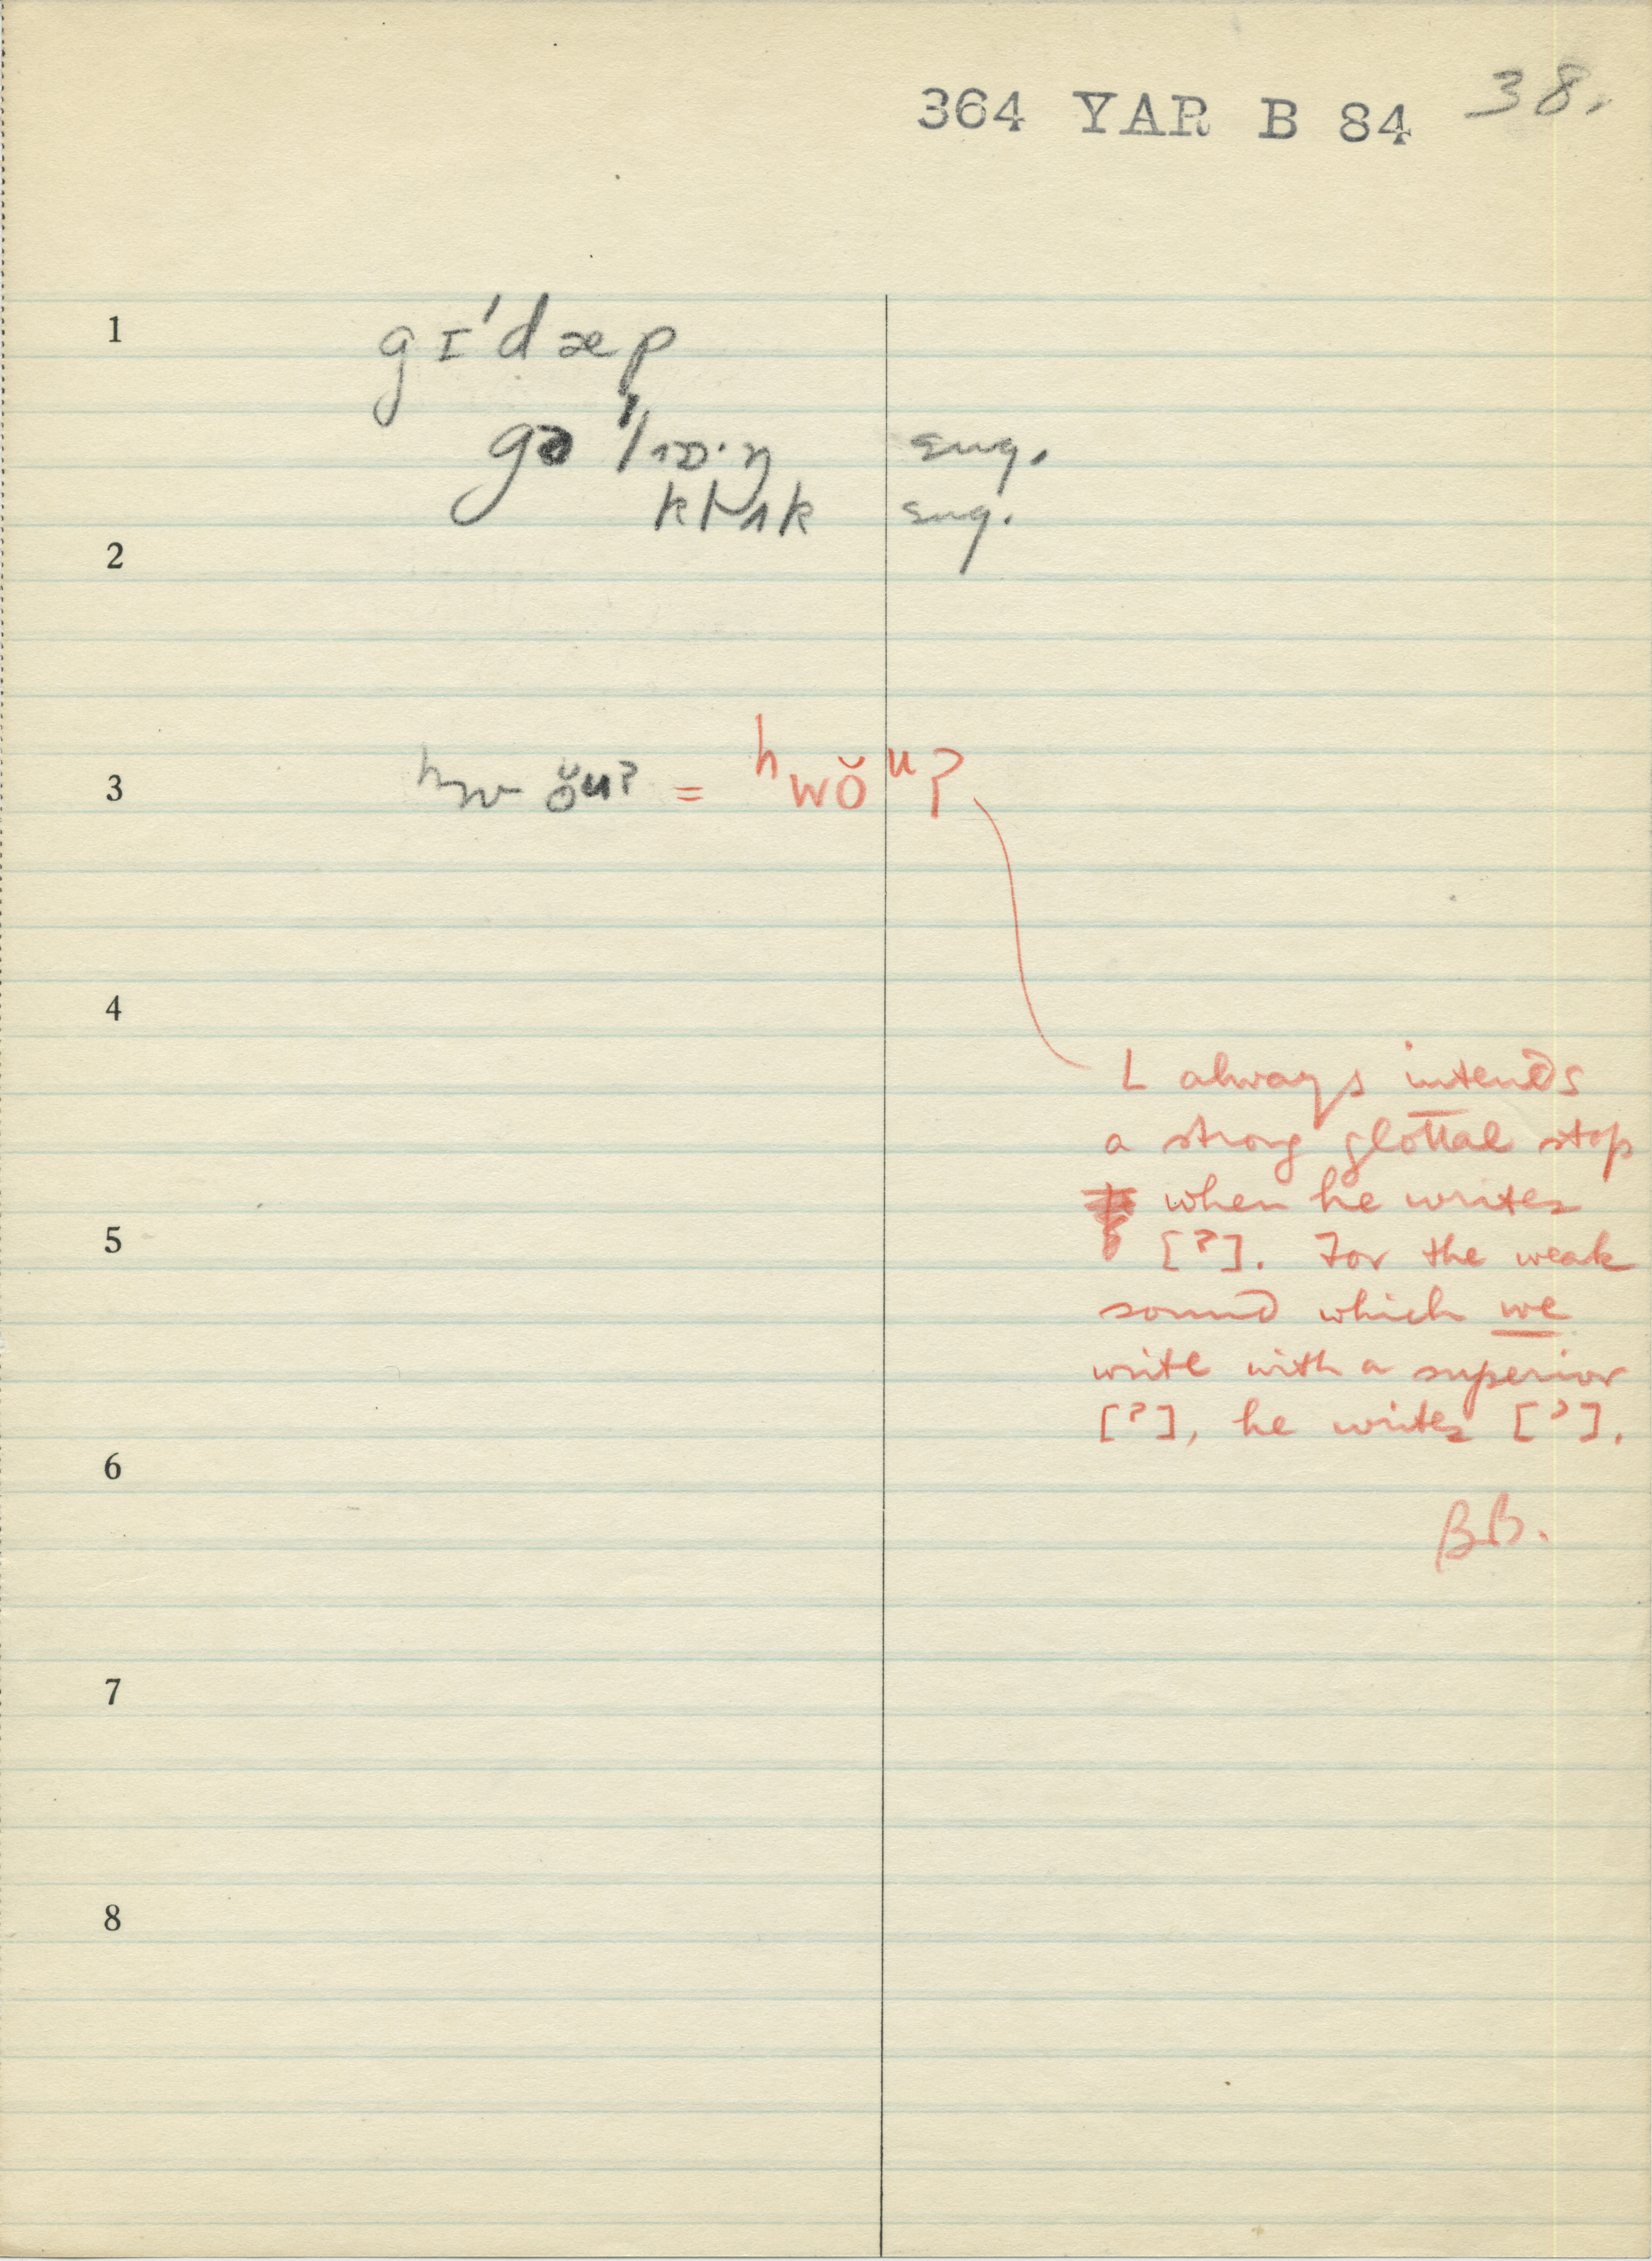 364 YAR B 84 38.
1 gɪˈdæp
gə ˈlɒ·ŋ eng.
klʌk eng.
2
3 ʰw ŏuʔ = ʰwŏᵘʔ
4
L always intends
a strong glottal stop
when he writes
5 [ʔ]. For the weak
sound which we
write with a superior
[ˀ], he writes [ʾ].
6
BB.
7
8